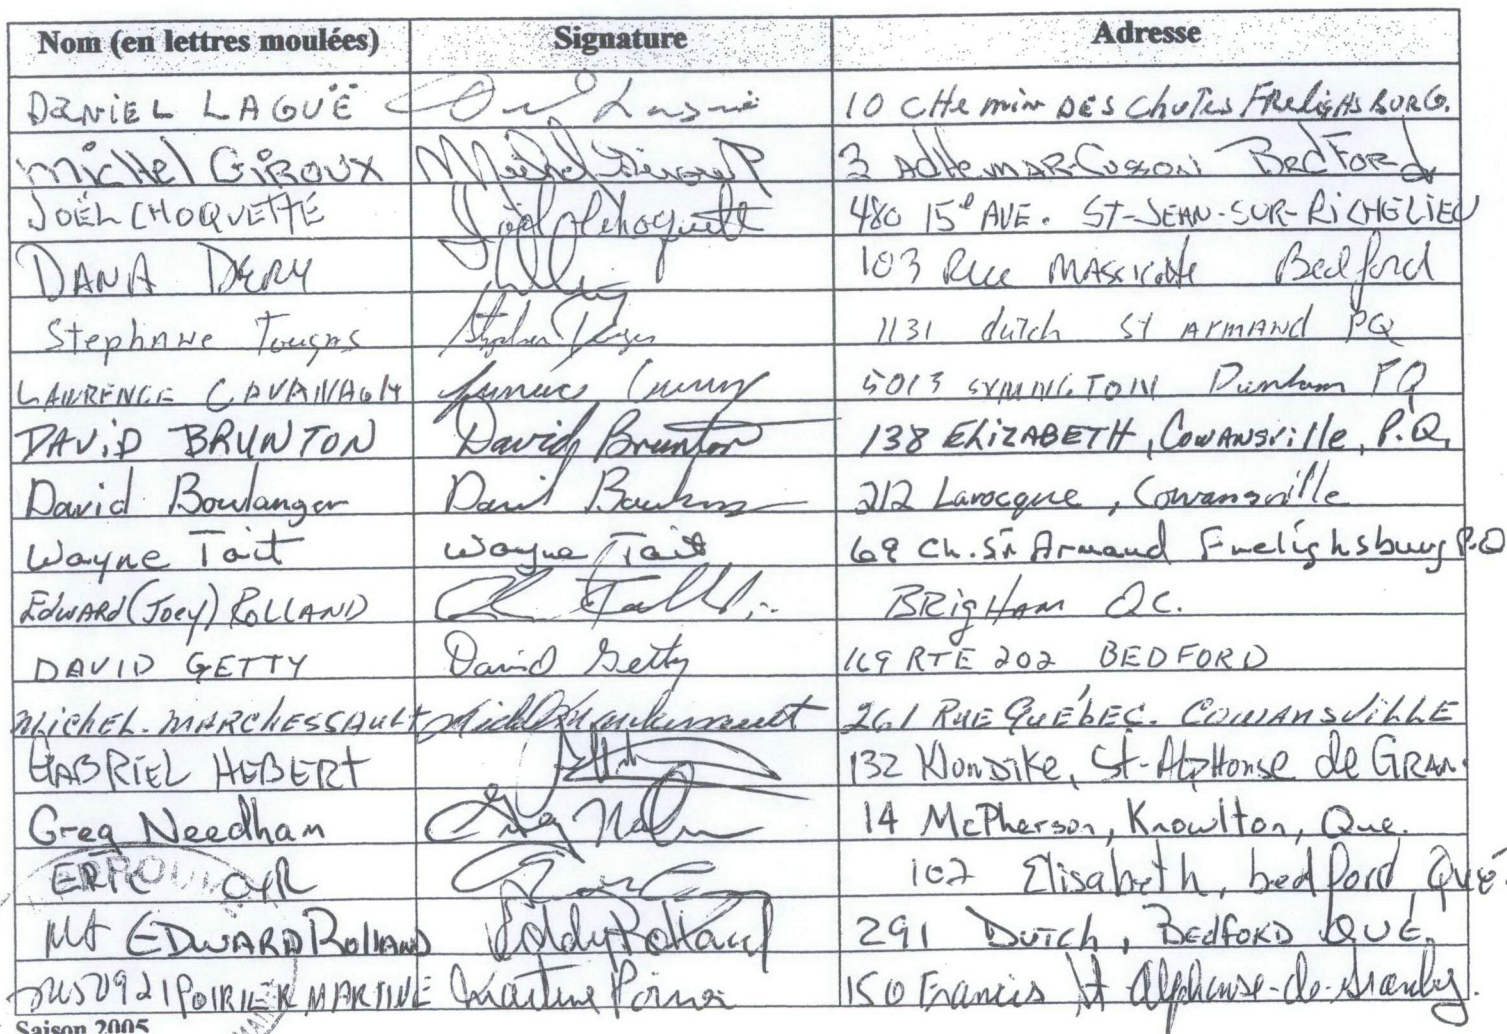 Nom (en lettres moulées) Signature Adresse
DANIEL LAGUË 10 CHemin DES CHUTES FReligHSBURG.
MicHel GIROUX Michel Giroux 3 ADHeMAR-CUSSON BEDFORd
JOËL CHOQUETTE Joël Choquette 480 15e AVE. ST-JEAN-SUR-RICHELIEU
DANA DERY 103 Rue MASSICOTTE Bedford
Stephane Tougas 1131 dutch St ARMAND PQ
LAWRENCE CAVANAGH 5013 SYMINGTON Dunham PQ
DAViD BRUNTON David Brunton 138 ELIZABETH, COWANSville, P.Q.
David Boulanger David 212 Larocque, Cowansville
Wayne Tait Wayne Tait 69 Ch. St Armand Frelighsburg P.Q
EdWARd (Joey) ROLLAND BRigHAM QC.
DAVID GETTY David Getty 169 RTE 202 BEDFORD
MicHEL. MARCHESSAULT Michel Marchessault 261 RUE QUÉBEC. COWANSViLLE
GABRIEL HEBERT 132 KlonDiKe, St-AlpHonse de GRAN.
Greg Needham 14 McPherson, Knowlton, Que.
ERIC CYR 102 Elisabeth, bedford Qué.
EDWARD ROLLAND Eddy Rolland 291 DUTCH, BEDFORD QUE.
POIRIER MARTINE Martine Poirier 150 Francis St Alphonse-de-Granby.
Saison 2005